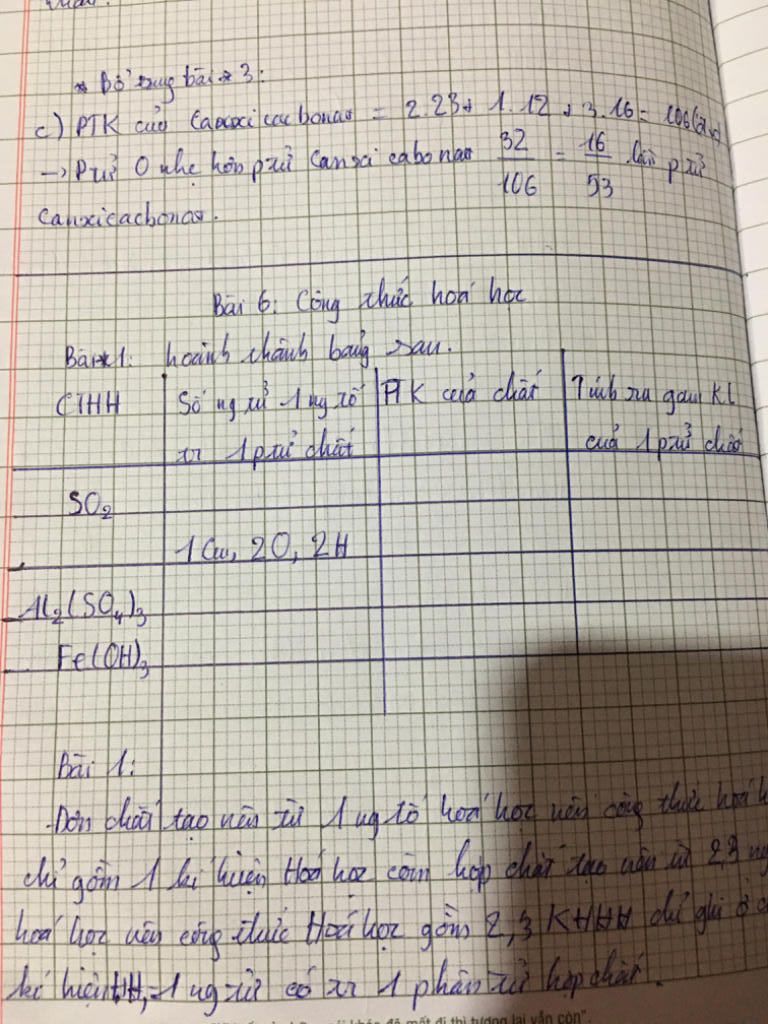 * Bổ sung bài * 3:
c) PTK của Canxxicacbonat = 2.23+ 1.12 + 3.16 = 106(đvC)
-> Ptử O nhẹ hơn ptử Canxi cabonat 32/106 = 16/53 lần ptử
Canxicacbonat.
Bài 6: Công thức hoá học
Bài 1: hoành thành bảng sau.
CTHH Số ng tử 1 ng tố PTK của chất Tính ra gam KL
tr 1 ptử chất của 1 ptử chất
SO₂
1 Cu, 2O, 2H
Al₂(SO₄)₃
Fe(OH)₃
Bài 1:
-Đơn chất tạo nên từ 1 ng tố hoá học nên công thức hoá h
chỉ gồm 1 kí hiệu Hoá học còn hợp chất tạo nên từ 2,3 ng
hoá học nên công thức Hoá học gồm 2,3 KHHH chỉ ghi ở c
kí hiệu HH, 1 ng tử có tr 1 phân tử hợp chất.
mất đi thì tương lai vẫn còn".